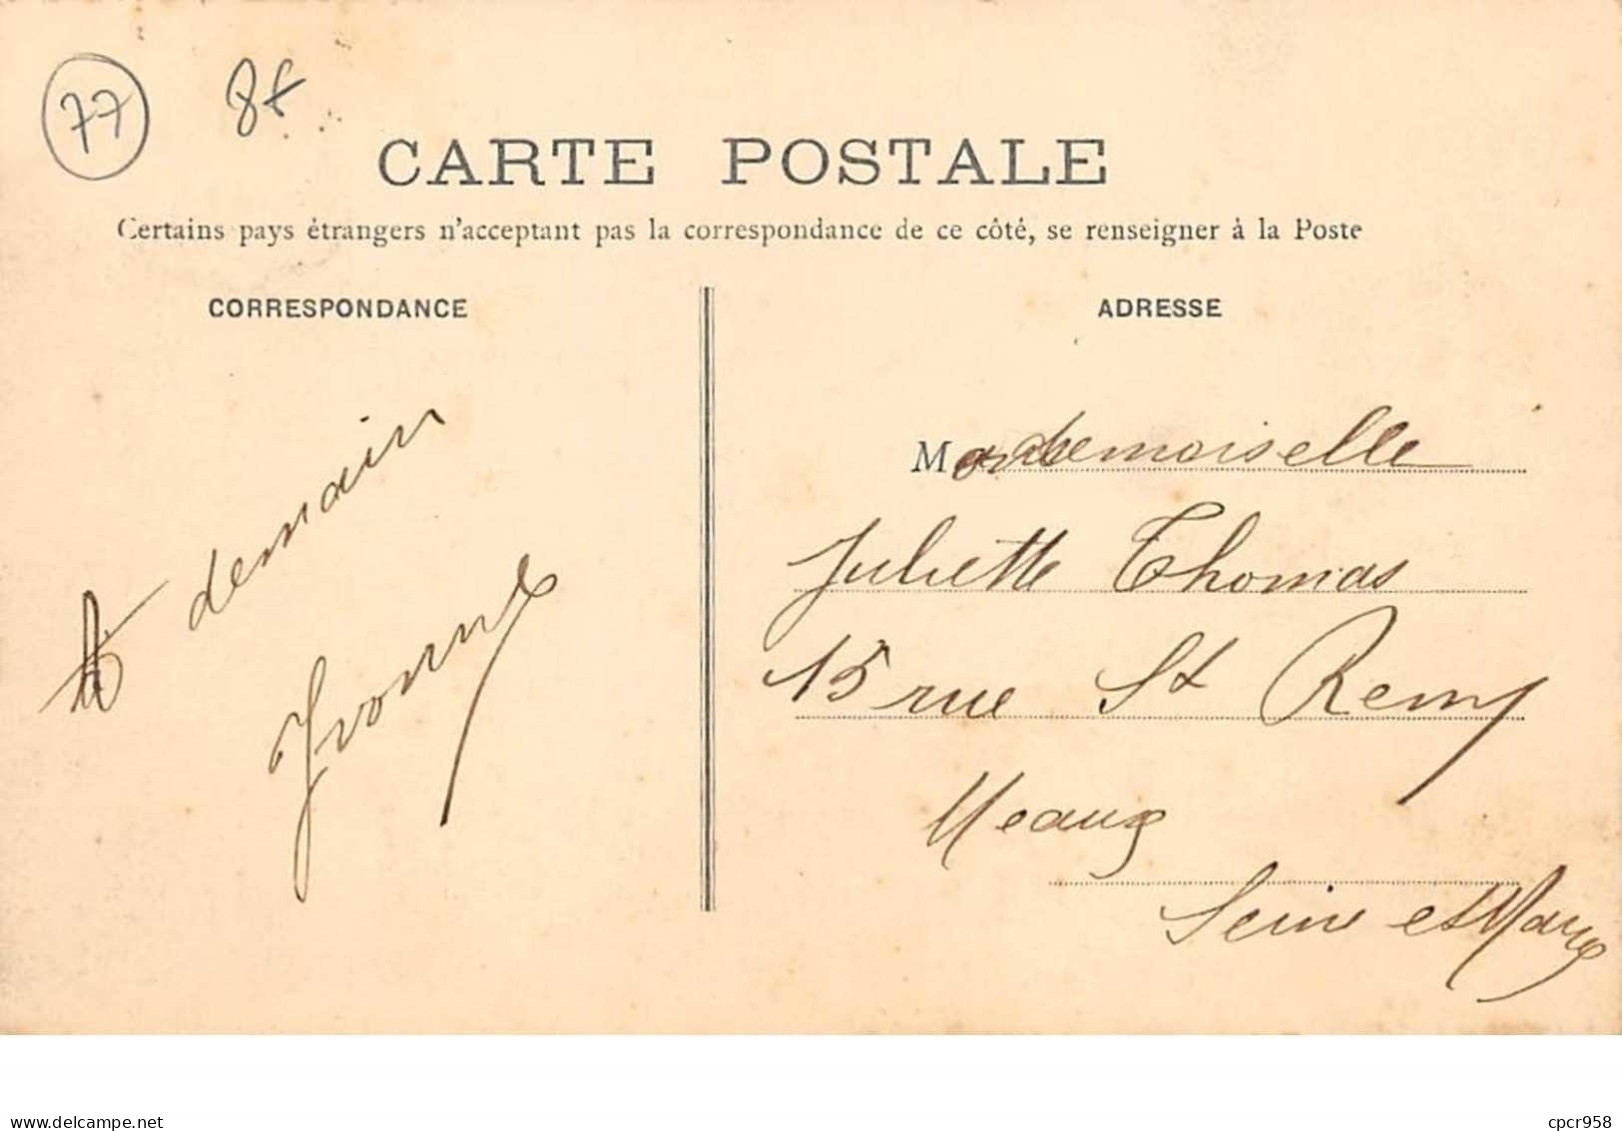 77 8€
CARTE POSTALE
Certains pays étrangers n'acceptant pas la correspondance de ce côté, se renseigner à la Poste
CORRESPONDANCE
A demain
Yvonne
ADRESSE
Mademoiselle
Juliette Thomas
15 rue St Remy
Meaux
Seine et Marne
www.delcampe.net
cpcr958